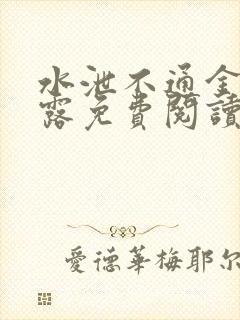 水泄不通金
露免費閱讀
愛德華梅耶尔